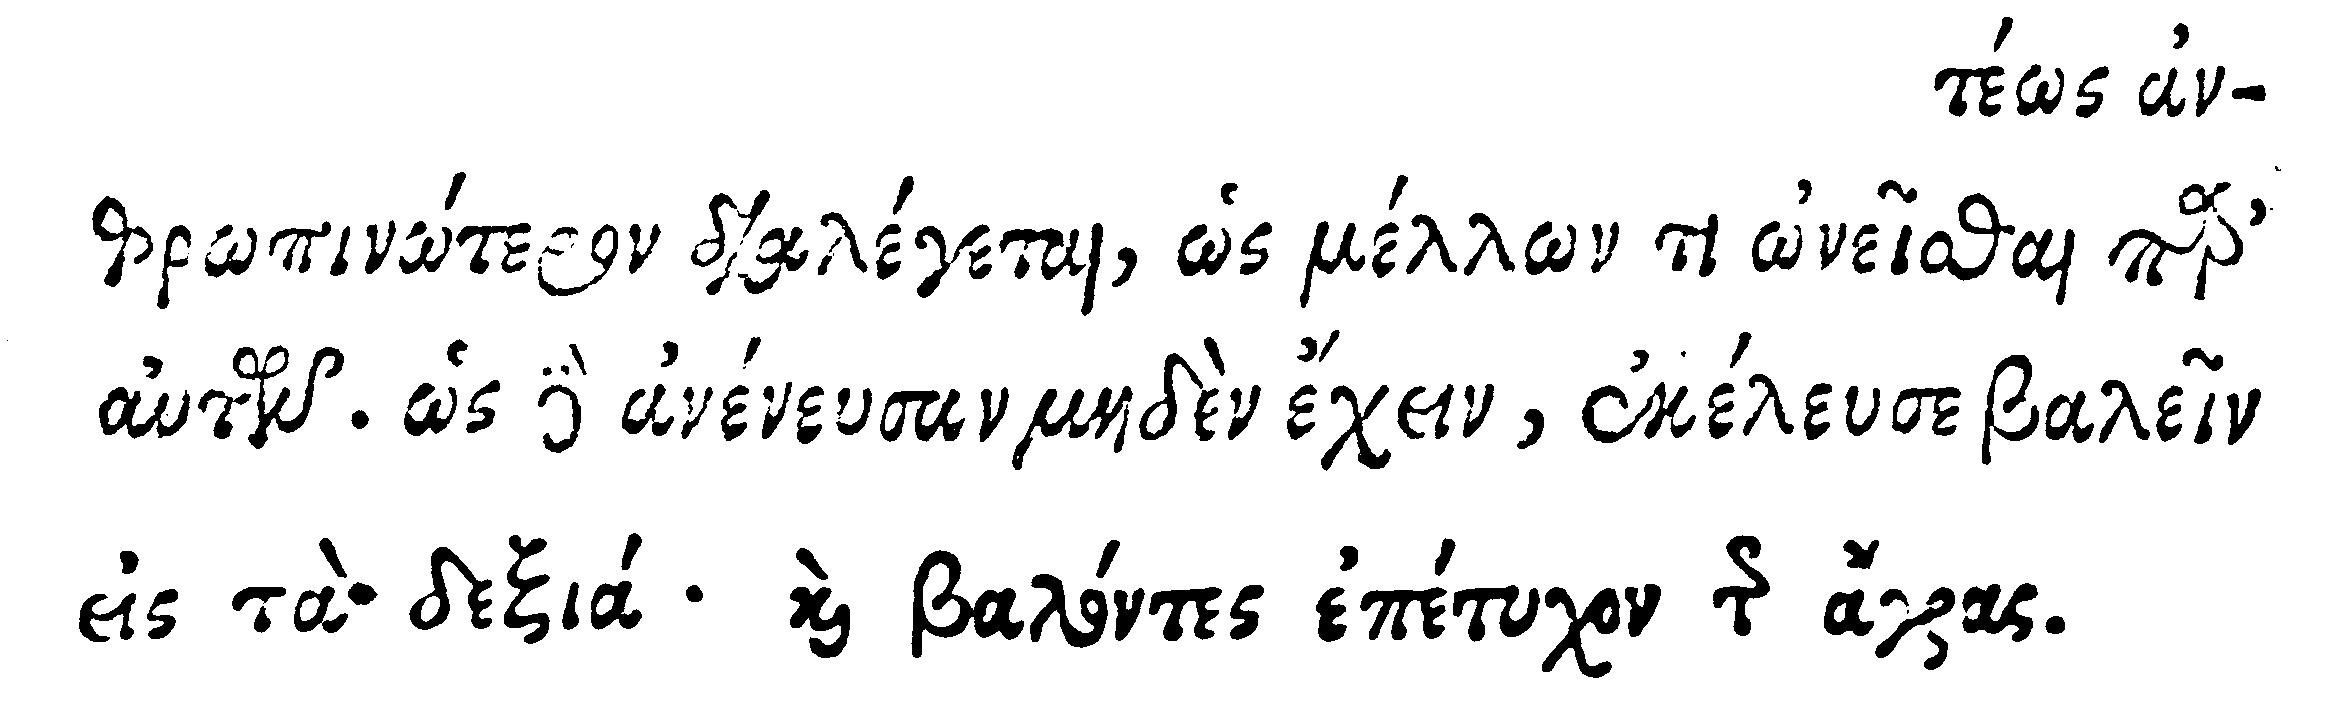 τέως ἀν-
θρωπινώτερον διαλέγεται, ὡς μέλλων τι ὠνεῖσθαι παρ’
αὐτῶν. ὡς δὲ ἀνένευσαν μηδὲν ἔχειν, ἐκέλευσε βαλεῖν
εἰς τὰ δεξιά. καὶ βαλόντες ἐπέτυχον τῆς ἄγρας.